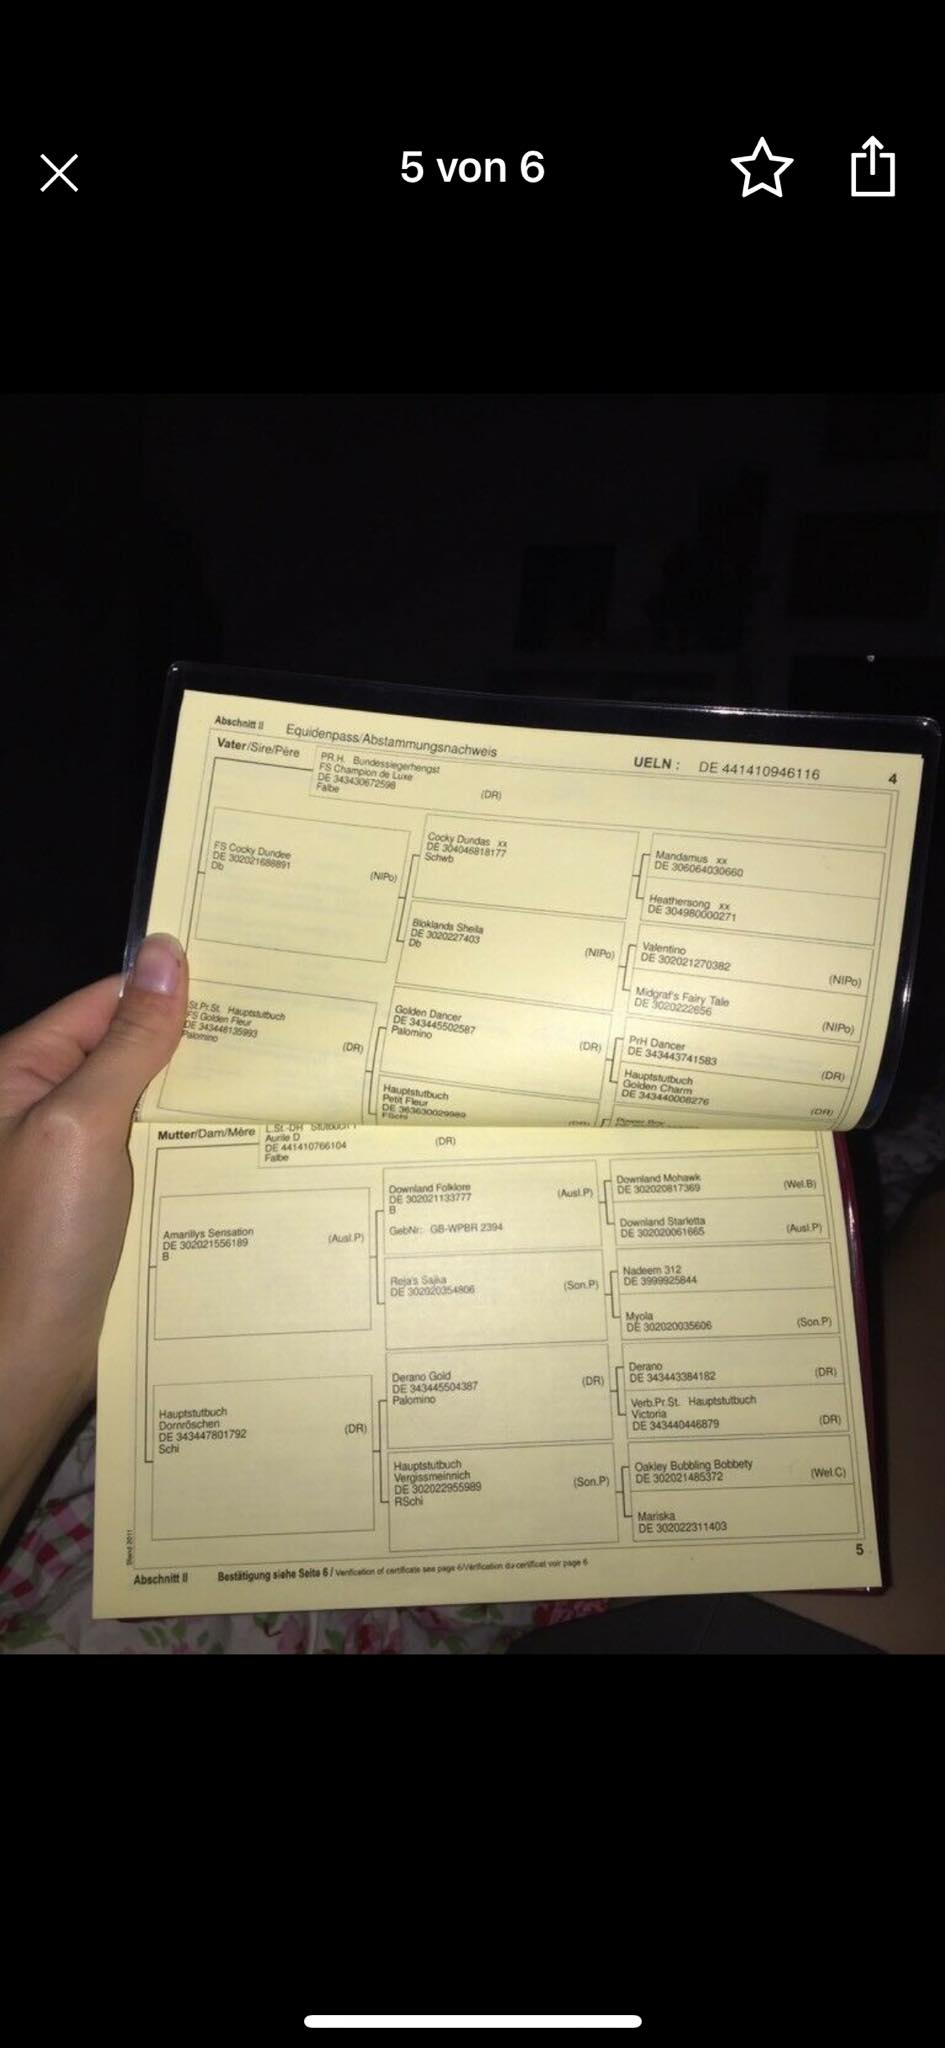 5 von 6
Abschnitt II Equidenpass/Abstammungsnachweis UELN : DE 441410946116 4
Vater/Sire/Père
PR.H. Bundessiegerhengst
FS Champion de Luxe
DE 343430672598 (DR)
Falbe
FS Cocky Dundee
DE 302021688891 (NIPo)
Db
Cocky Dundas xx
DE 304046818177
Schwb
Mandamus xx
DE 306064030660
Heathersong xx
DE 304980000271
Bloklands Sheila
DE 3020227403 (NIPo)
Db
Valentino
DE 302021270382 (NIPo)
Midgraf's Fairy Tale
DE 3020222656 (NIPo)
St.Pr.St. Hauptstutbuch
FS Golden Fleur
DE 343448135993 (DR)
Palomino
Golden Dancer
DE 343445502587 (DR)
Palomino
PrH Dancer
DE 343443741583 (DR)
Hauptstutbuch
Golden Charm
DE 343440008276 (DR)
Hauptstutbuch
Petit Fleur
DE 363630029989
FSchi
Mutter/Dam/Mère
Aurile D (DR)
DE 441410766104
Falbe
Amarillys Sensation
DE 302021556189 (Ausl.P)
B
Downland Folklore
DE 302021133777 (Ausl.P)
B
GebNr: GB-WPBR 2394
Downland Mohawk
DE 302020817369 (Wel.B)
Downland Starletta
DE 302020061665 (Ausl.P)
Reja's Sajka
DE 302020354806 (Son.P)
Nadeem 312
DE 3999925844
Myola
DE 302020035606 (Son.P)
Hauptstutbuch
Dornröschen
DE 343447801792 (DR)
Schi
Derano Gold
DE 343445504387 (DR)
Palomino
Derano
DE 343443384182 (DR)
Verb.Pr.St. Hauptstutbuch
Victoria
DE 343440446879 (DR)
Hauptstutbuch
Vergissmeinnich
DE 302022955989 (Son.P)
RSchi
Oakley Bubbling Bobbety
DE 302021485372 (Wel.C)
Mariska
DE 302022311403
Stand 2011
5
Abschnitt II Bestätigung siehe Seite 6 / Verification of certificate see page 6/Vérification du certificat voir page 6